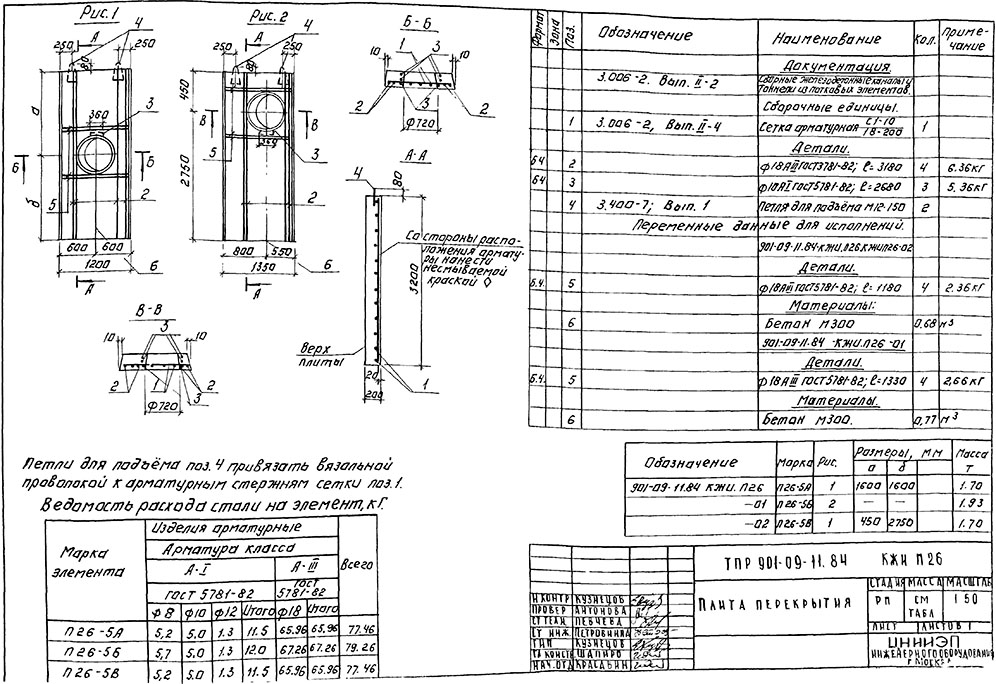 Рис.1
Рис.2
Б-Б
А
4
А
4
250
250
250
250
80
10
1
3
10
2
3
2
ф720
а
б
360
3
450
2750
В
В
Б
Б
5
2
5
360
3
2
600
600
1200
6
800
550
1350
6
А
А
А-А
4
80
Со стороны распо-
ложения армату-
ры нанести
несмываемой
краской
3200
Верх
плиты
20
200
1
В-В
3
10
10
2
1
2
3
ф720
Петли для подъёма поз.4 привязать вязальной
проволокой к арматурным стержням сетки поз.1.
Ведомость расхода стали на элемент, кГ.
Марка элемента
Изделия арматурные
Всего
Арматура класса
А-I
А-III
гост 5781-82
гост 5781-82
ф8 ф10 ф12 Итого ф18 Итого
П26-5А 5,2 5,0 1.3 11.5 65.96 65.96 77.46
П26-5Б 5,7 5.0 1.3 12.0 67.26 67.26 79.26
П26-5В 5,2 5,0 1.3 11.5 65.96 65.96 77.46
Формат Зона Поз. Обозначение Наименование Кол. Приме-чание
Документация.
3.006-2. Вып. II-2 Сборные железобетонные каналы и тоннели из лотковых элементов
Сборочные единицы.
1 3.006-2, Вып. II-4 Сетка арматурная С1-10/18-200 1
Детали.
Б4 2 ф18АIII ГОСТ5781-82; ℓ=3180 4 6.36кГ
Б4 3 ф10АI ГОСТ5781-82; ℓ=2680 3 5.36кГ
4 3.400-7; Вып. 1 Петля для подъёма М12-150 2
Переменные данные для исполнений.
901-09-11.84-КЖИ.П26, КЖИП26-02
Детали.
Б.4. 5 ф18АIII ГОСТ5781-82; ℓ=1180 4 2.36кГ
Материалы:
6 Бетон М300 0,68 м³
901-09-11.84-КЖИ.П26-01
Детали.
Б.4. 5 ф18АIII ГОСТ5781-82; ℓ=1330 4 2,66кГ
Материалы.
6 Бетон М300. 0,77 м³
Обозначение Марка Рис. Размеры, мм Масса т
а б
901-09-11.84 КЖИ. П26 П26-5А 1 1600 1600 1.70
-01 П26-5Б 2 — — 1.93
-02 П26-5В 1 450 2750 1.70
ТПР 901-09-11.84 КЖИ П26
Плита перекрытия
СТАДИЯ МАССА МАСШТАБ
РП СМ ТАБЛ 1 50
ЛИСТ ЛИСТОВ 1
ЦНИИЭП
ИНЖЕНЕРНОГО ОБОРУДОВАНИЯ
Г МОСКВА
Н КОНТР КУЗНЕЦОВ
ПРОВЕР АНТОНОВА
СТ ТЕХН ПЕВЧЕВА
СТ ИНЖ ПЕТРОВНИНА
ГИП КУЗНЕЦОВ
ГЛ КОНСТР ШАПИРО
НАЧ.ОТД КРАСАВИН